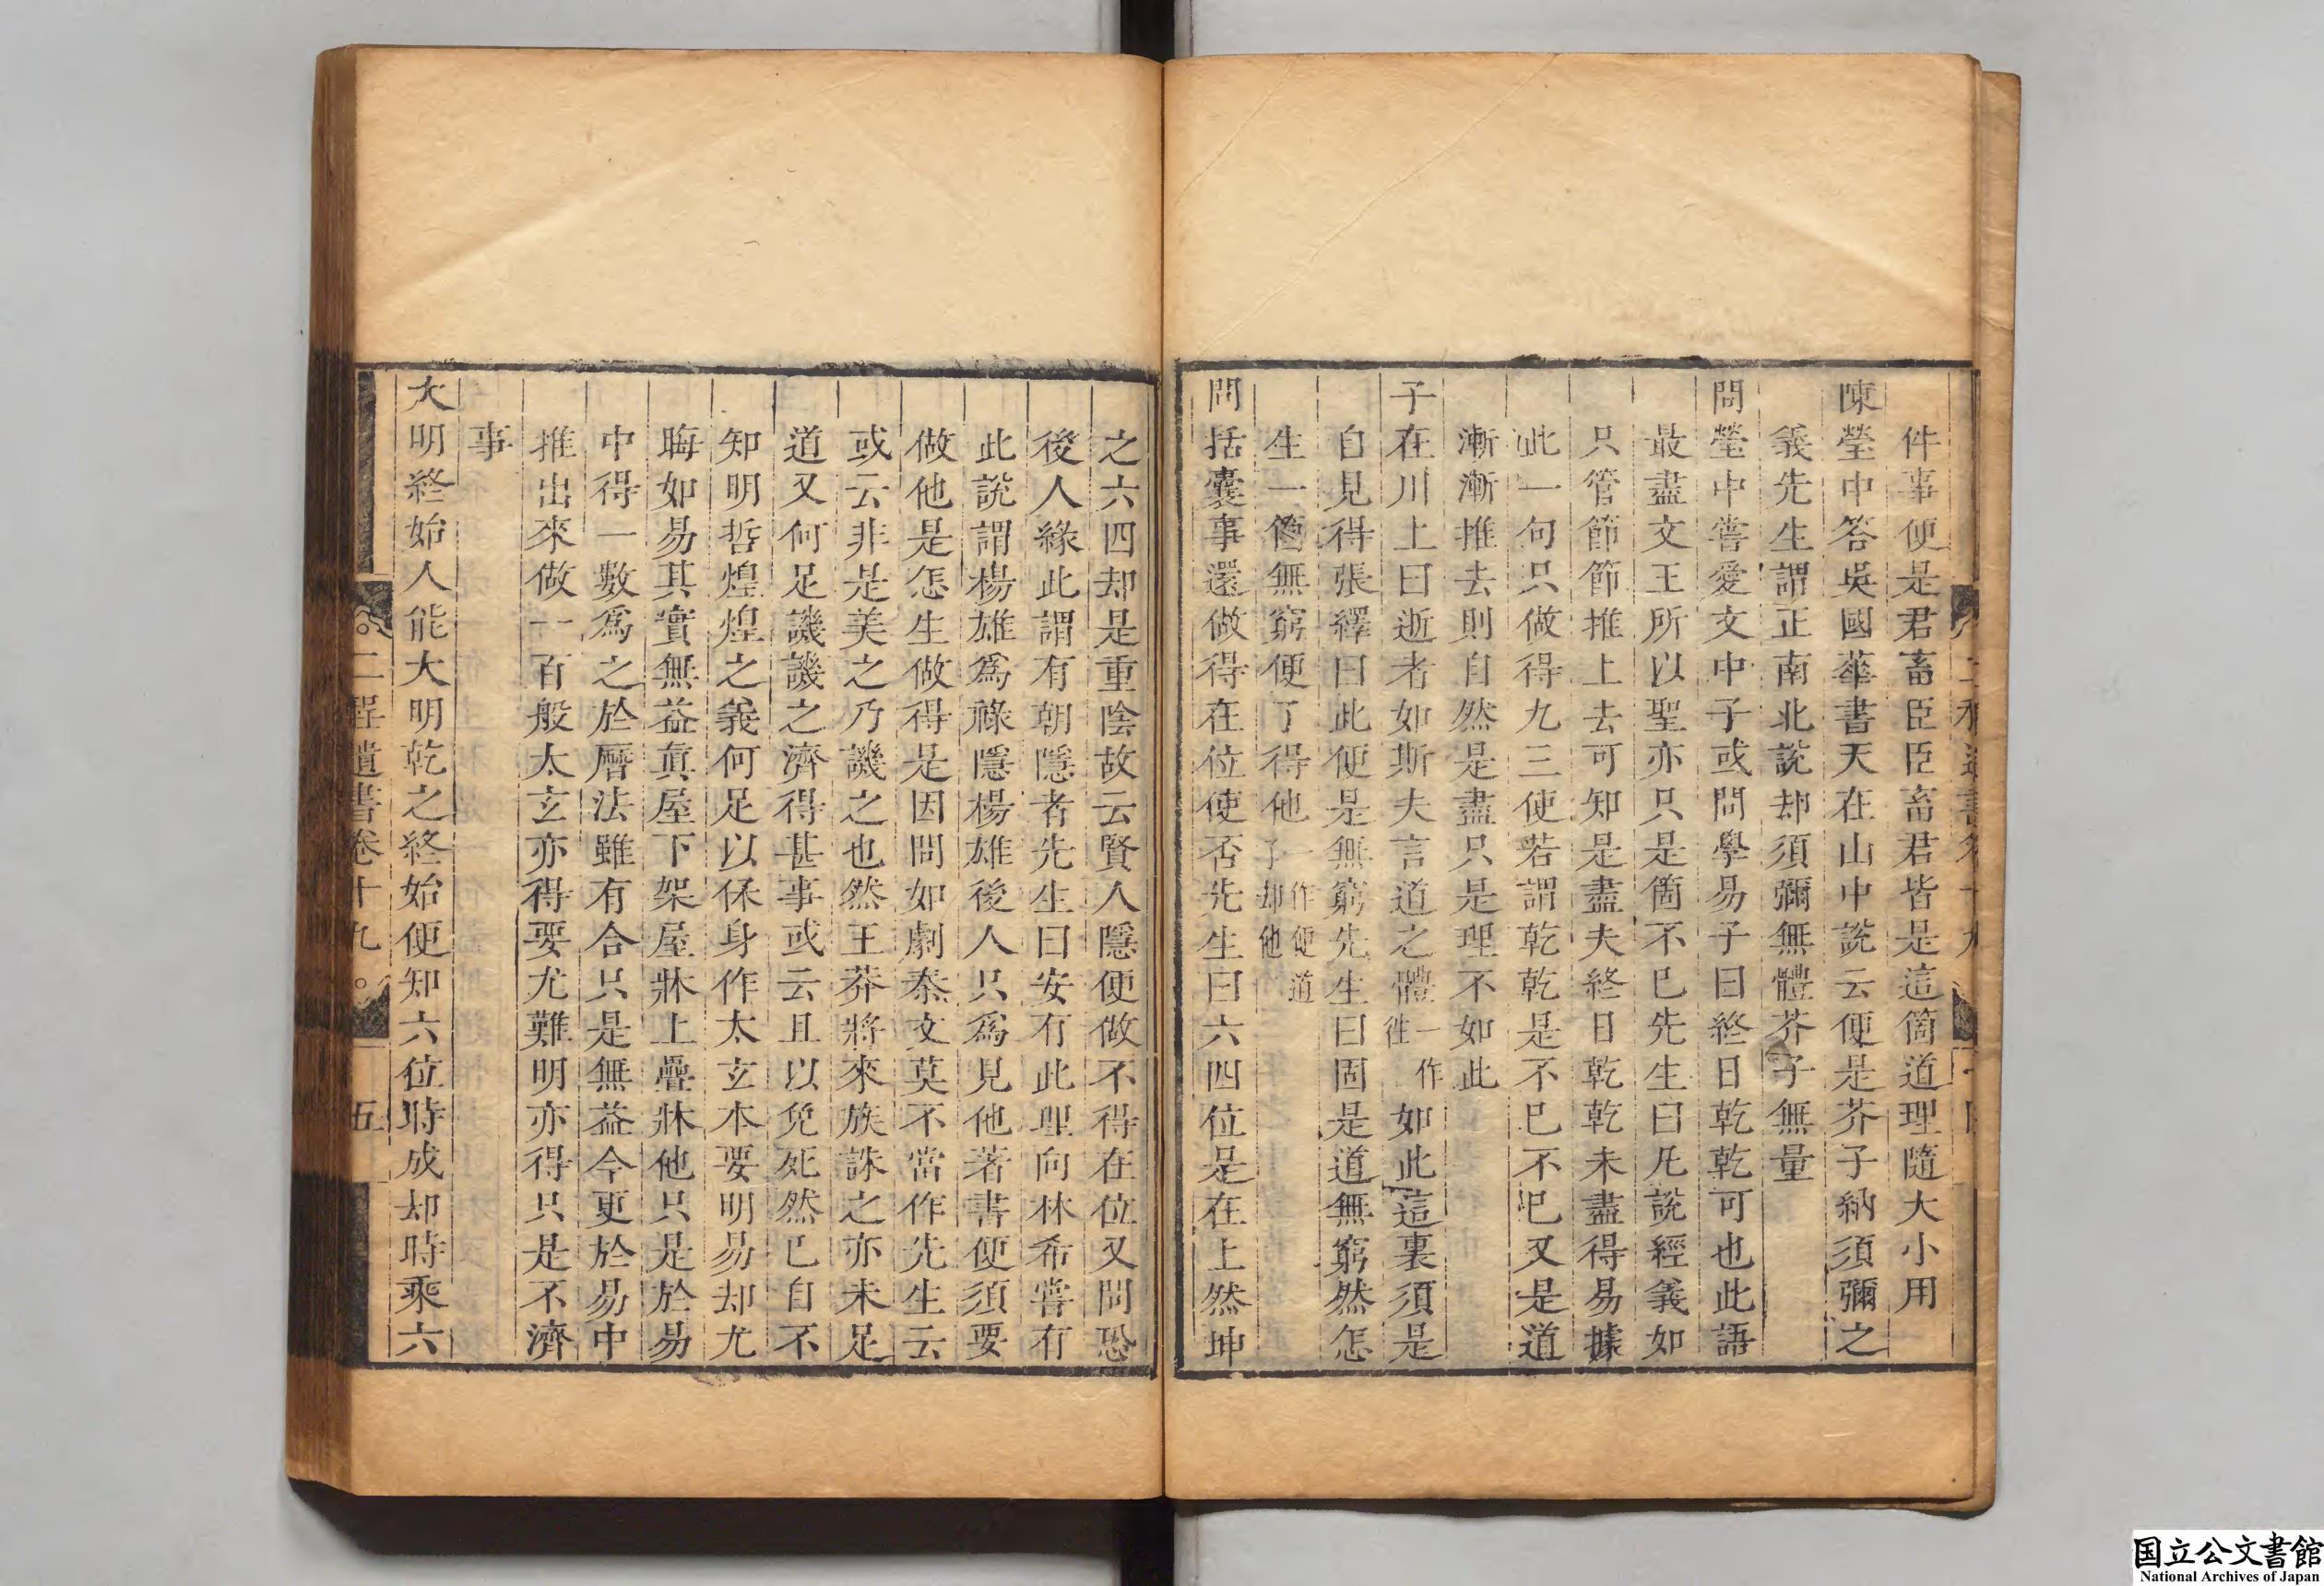 件事便是君畜臣臣畜君皆是這箇道理隨大小用
陳瑩中答吳國華書天在山中說云便是芥子納須彌之
義先生謂正南北說却須彌無體芥子無量
問瑩中嘗愛文中子或問學易子曰終日乾乾可也此語
最盡文王所以聖亦只是箇不已先生曰凡說經義如
只管節節推上去可知是盡夫終日乾乾未盡得易據
此一句只做得九三使若謂乾乾是不已不已又是道
漸漸推去則自然是盡只是理不如此
子在川上曰逝者如斯夫言道之體一作往如此這裏須是
自見得張繹曰此便是無窮先生曰固是道無窮然怎
生一箇無窮便了得他一作便道了却他
問括囊事還做得在位使否先生曰六四位是在上然坤
之六四却是重陰故云賢人隱便做不得在位又問恐
後人緣此謂有朝隱者先生曰安有此理向林希嘗有
此說謂楊雄爲祿隱楊雄後人只爲見他著書便須要
做他是怎生做得是因問如劇秦文莫不當作先生云
或云非是美之乃譏之也然王莽將來族誅之亦未足
道又何足譏譏之濟得甚事或云且以免死然已自不
知明哲煌煌之義何足以保身作太玄本要明易却尤
晦如易其實無益真屋下架屋牀上疊牀他只是於易
中得一數爲之於曆法雖有合只是無益今更於易中
推出來做一百般太玄亦得要尤難明亦得只是不濟
事
大明終始人能大明乾之終始便知六位時成却時乘六
二程遺書卷十九
五
国立公文書館
National Archives of Japan